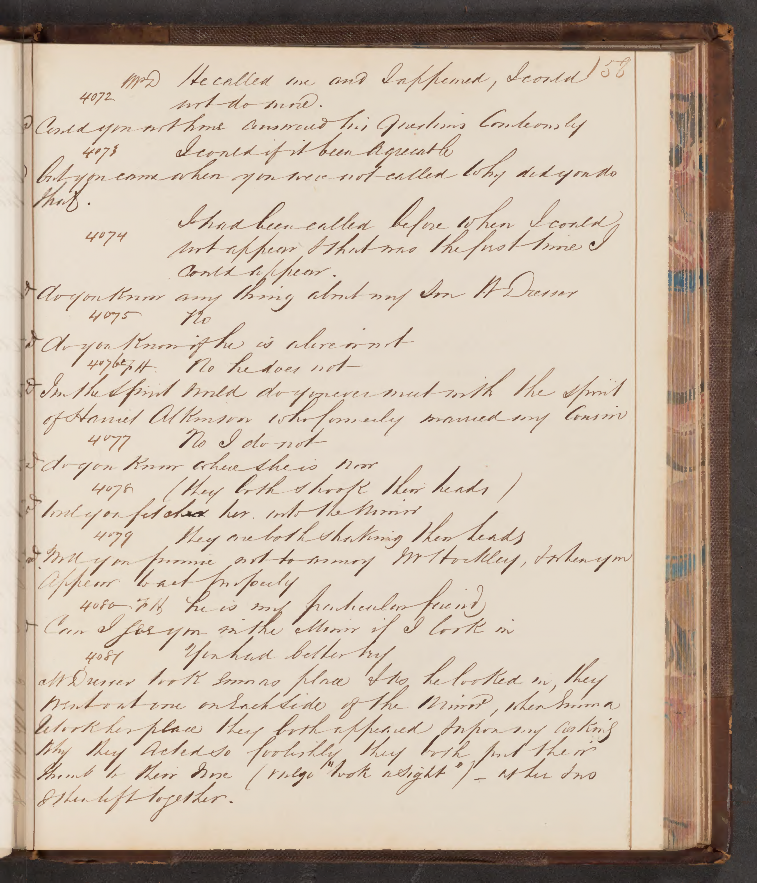 158
Mr D He called me and I appeared, I could
4072 not do more.
Could you not have answered his Questions Courteously
4073 I could if it been Agreeable
but you came when you were not called Why did you do
that.
I had been called before when I could
4074 not appear & that was the first time I
could appear.
do you Know any thing about my Son W Dresser
4075 No
do you Know if he is alive or not
4076 No he does not
In the Spirit World do you ever meet with the spirit
of Harriet Atkinson who formerly married my Cousin
4077 No I do not
do you Know where she is now
4078 (they both shook their heads)
Will you fetch her into the Mirror
4079 they are both shaking their heads
Will you promise not to annoy Mr Hockley, & when you
Appear to act properly
4080 F H he is my particular friend
Can I see you in the Mirror if I look in
4081 You had better try
Mr Dresser took Emmas place & As he looked in, they
Went out one on Each side of the Mirror, when Emma
retook her place they both appeared & upon my asking
Why they Acted so foolishly they both put their
thumb to their Nose (vulgo "took a sight")
& then left together.